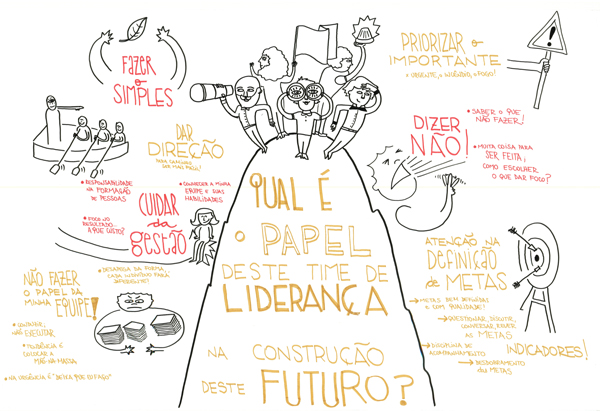 FAZER
o
SIMPLES
DAR
DIREÇÃO
• RESPONSABILIDADE
NA FORMAÇÃO
DE PESSOAS
• FOCO NO
RESULTADO...
A QUE CUSTO?
• CONHECER A MINHA
EQUIPE E SUAS
HABILIDADES
CUIDAR
da
gestão
• DESAPEGA DA FORMA,
CADA INDIVÍDUO FARÁ
DIFERENTE!
NÃO FAZER
O PAPEL DA
MINHA EQUIPE!
NÃO EXECUTAR
• TENDÊNCIA É
COLOCAR A
MÃO-NA-MASSA
• NA URGÊNCIA É "DEIXA QUE EU FAÇO"
QUAL É
o PAPEL
DESTE TIME DE
LIDERANÇA
NA CONSTRUÇÃO
DESTE FUTURO?
PRIORIZAR o
IMPORTANTE
o URGENTE, o INCÊNDIO, o FOGO!
!
DIZER
NÃO!
• SABER O QUE
NÃO FAZER!
• MUITA COISA PARA
SER FEITA,
COMO ESCOLHER
O QUE DAR FOCO?
ATENÇÃO NA
DEFINIÇÃO
de METAS
→ METAS BEM DEFINIDAS
e COM QUALIDADE!
→ QUESTIONAR, DISCUTIR,
CONVERSAR, REVER
AS METAS
→ DISCIPLINA DE
ACOMPANHAMENTO
→ DESDOBRAMENTO
das METAS
INDICADORES!